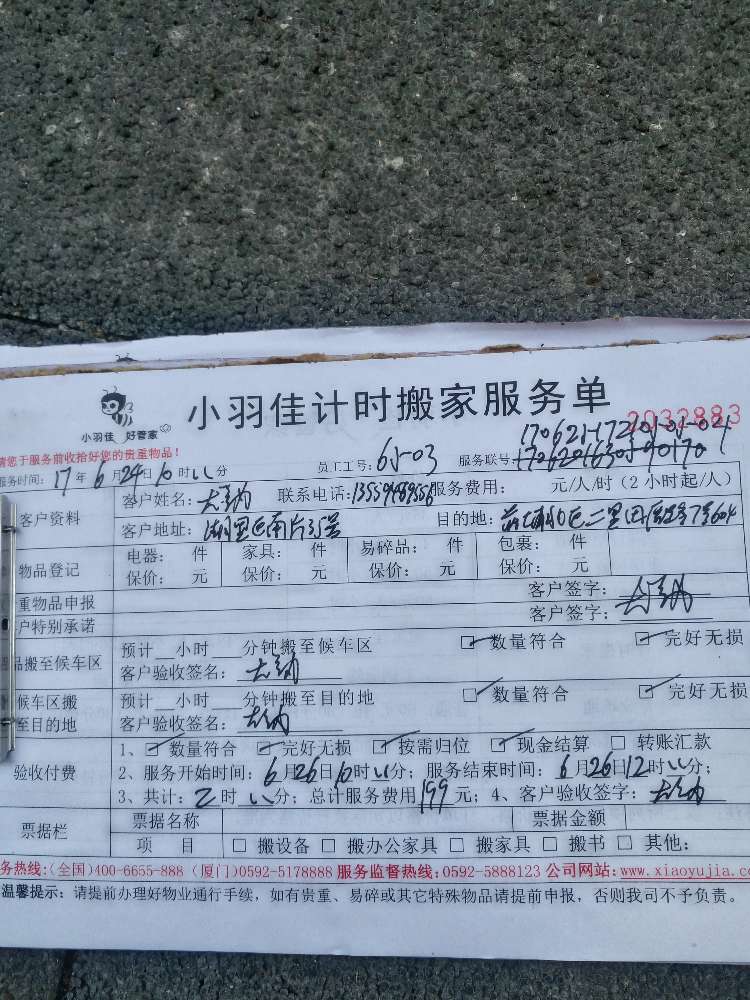 小羽佳 好管家
小羽佳计时搬家服务单
2032883
请您于服务前收拾好您的贵重物品!
服务时间: 17年6月24日10时 分 员工工号: 服务联号:
客户资料
客户姓名: 联系电话: 服务费用: 元/人/时(2小时起/人)
客户地址: 湖里区南片35号 目的地:
物品登记
电器: 件 家具: 件 易碎品: 件 包裹: 件
保价: 元 保价: 元 保价: 元 保价: 元
重物品申报 客户签字:
户特别承诺 客户签字:
品搬至候车区
预计__小时___分钟搬至候车区 ☑数量符合 ☑完好无损
客户验收签名:
候车区搬至目的地
预计__小时___分钟搬至目的地 ☑数量符合 ☑完好无损
客户验收签名:
验收付费
1、☑数量符合 ☑完好无损 ☑按需归位 ☑现金结算 □转账汇款
2、服务开始时间: 6月26日10时 分; 服务结束时间: 6月26日12时 分;
3、共计: 2时 分; 总计服务费用199元; 4、客户验收签字:
票据栏
票据名称 票据金额
项 目 □搬设备 □搬办公家具 □搬家具 □搬书 □其他:
务热线:(全国)400-6655-888 (厦门)0592-5178888 服务监督热线:0592-5888123 公司网站:www.xiaoyujia.co
温馨提示: 请提前办理好物业通行手续, 如有贵重、易碎或其它特殊物品请提前申报, 否则我司不予负责。